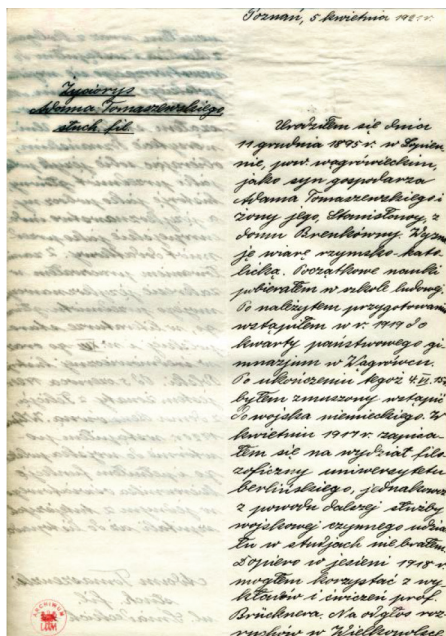 Poznań, 5 kwietnia
Życiorys
Adama Tomaszewskiego,
słuch. fil.
Urodziłem się dnia
11 grudnia 1895 r. w Łopien-
nie, pow. wągrówieckim,
jako syn gospodarza
Adama Tomaszewskiego i
żony jego, Stanisławy, z
domu Brenkówny. Wyzna-
ję wiarę rzymsko-kato-
licką. Początkowe nauki
pobierałem w szkole ludowej.
Po należytem przygotowaniu
wstąpiłem w r. do
kwarty państwowego gi-
mnazjum w Wągrówcu.
Po ukończeniu tegoż
byłem zmuszony wstąpić
do wojska niemieckiego. W
kwietniu 1917 r. zapisa-
łem się na wydział filo-
zoficzny uniwersytetu
berlińskiego, jednakowoż
z powodu dalszej służby
wojskowej czynnego udzia-
łu w studjach nie brałem.
Dopiero w jesieni 1918 r.
mogłem korzystać z wy-
kładów i ćwiczeń prof.
Brücknera. Na odgłos roz-
ruchów w Wielkopolsce
ARCHIWUM